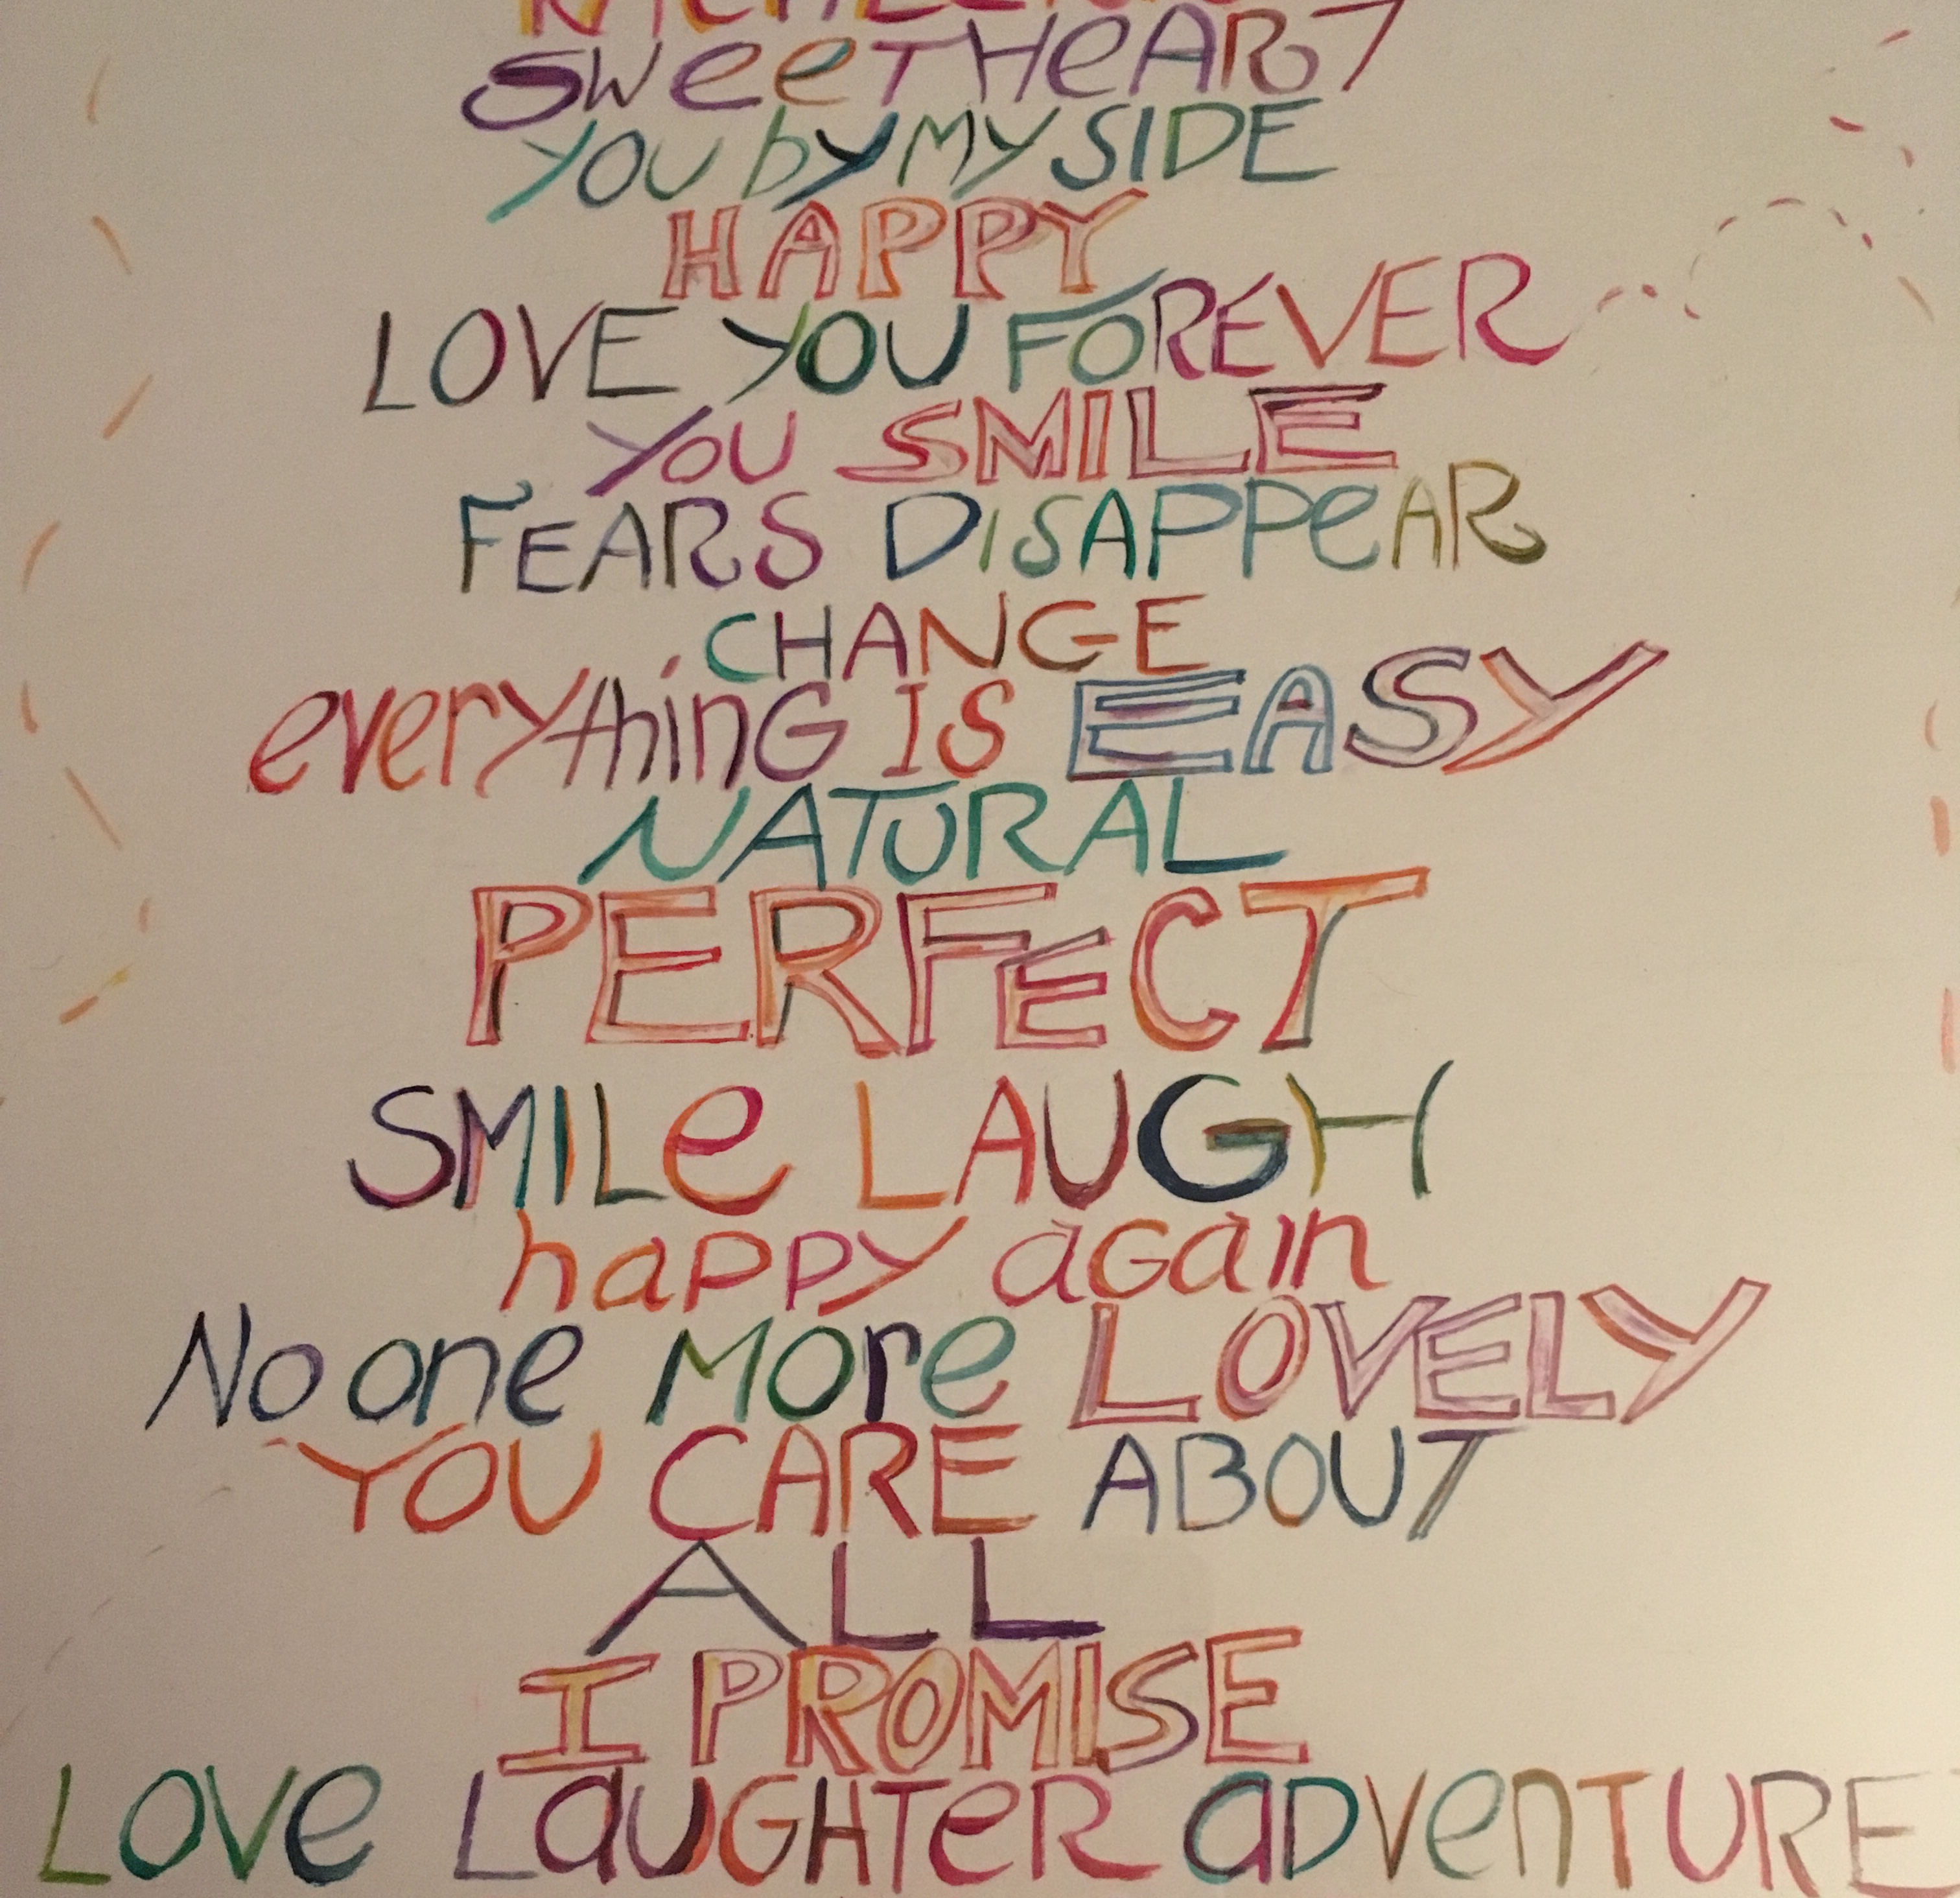 SWeeTHeART
YOU by MY SIDE
HAPPY
LOVE YOU FOREVER
YOU SMILE
FEARS DISAPPeAR
CHANGE
everythinG IS EASY
NATURAL
PERFECT
SMILe LAUGH
happy aGain
No one More LOVELY
YOU CARE ABOUT
ALL
I PROMISE
LOVe LaUGHTeR aDVenTURE